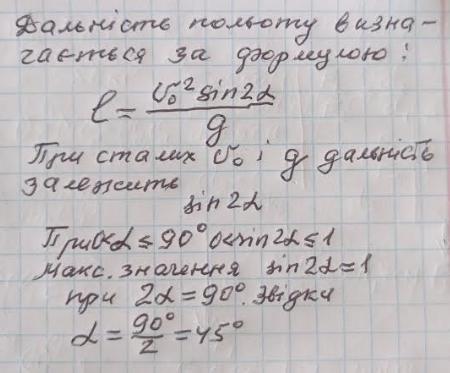 Дальність польоту визна-
чається за формулою:
l = v₀² sin2α / g
При сталих v₀ і g дальність
залежить
sin2α
При 0<α≤90° 0<sin2α≤1
Макс. значення sin2α=1
при 2α=90°. Звідки
α = 90°/2 = 45°